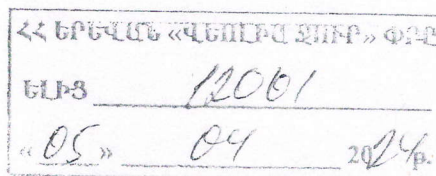 ՀՀ ԵՐԵՎԱՆ «ՎԵՈԼԻԱ ՋՈՒՐ» ՓԲԸ
ԵԼԻՑ 12001
«05» 04 2024թ.